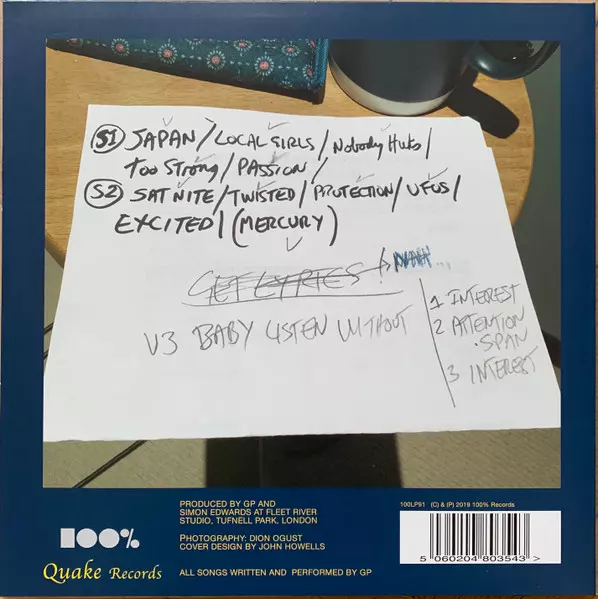 S1 JAPAN / LOCAL GIRLS / Nobody Hurts /
Too Strong / PASSION /
S2 SAT NITE / TWISTED / PROTECTION / UFOS /
EXCITED / (MERCURY)
GET LYRICS !
V3 BABY LISTEN WITHOUT
1 INTEREST
2 ATTENTION
. SPAN
3 INTEREST
100%
Quake Records
PRODUCED BY GP AND
SIMON EDWARDS AT FLEET RIVER
STUDIO, TUFNELL PARK, LONDON
PHOTOGRAPHY: DION OGUST
COVER DESIGN BY JOHN HOWELLS
ALL SONGS WRITTEN AND PERFORMED BY GP
100LP91 (C) & (P) 2019 100% Records
5 060204 803543 >